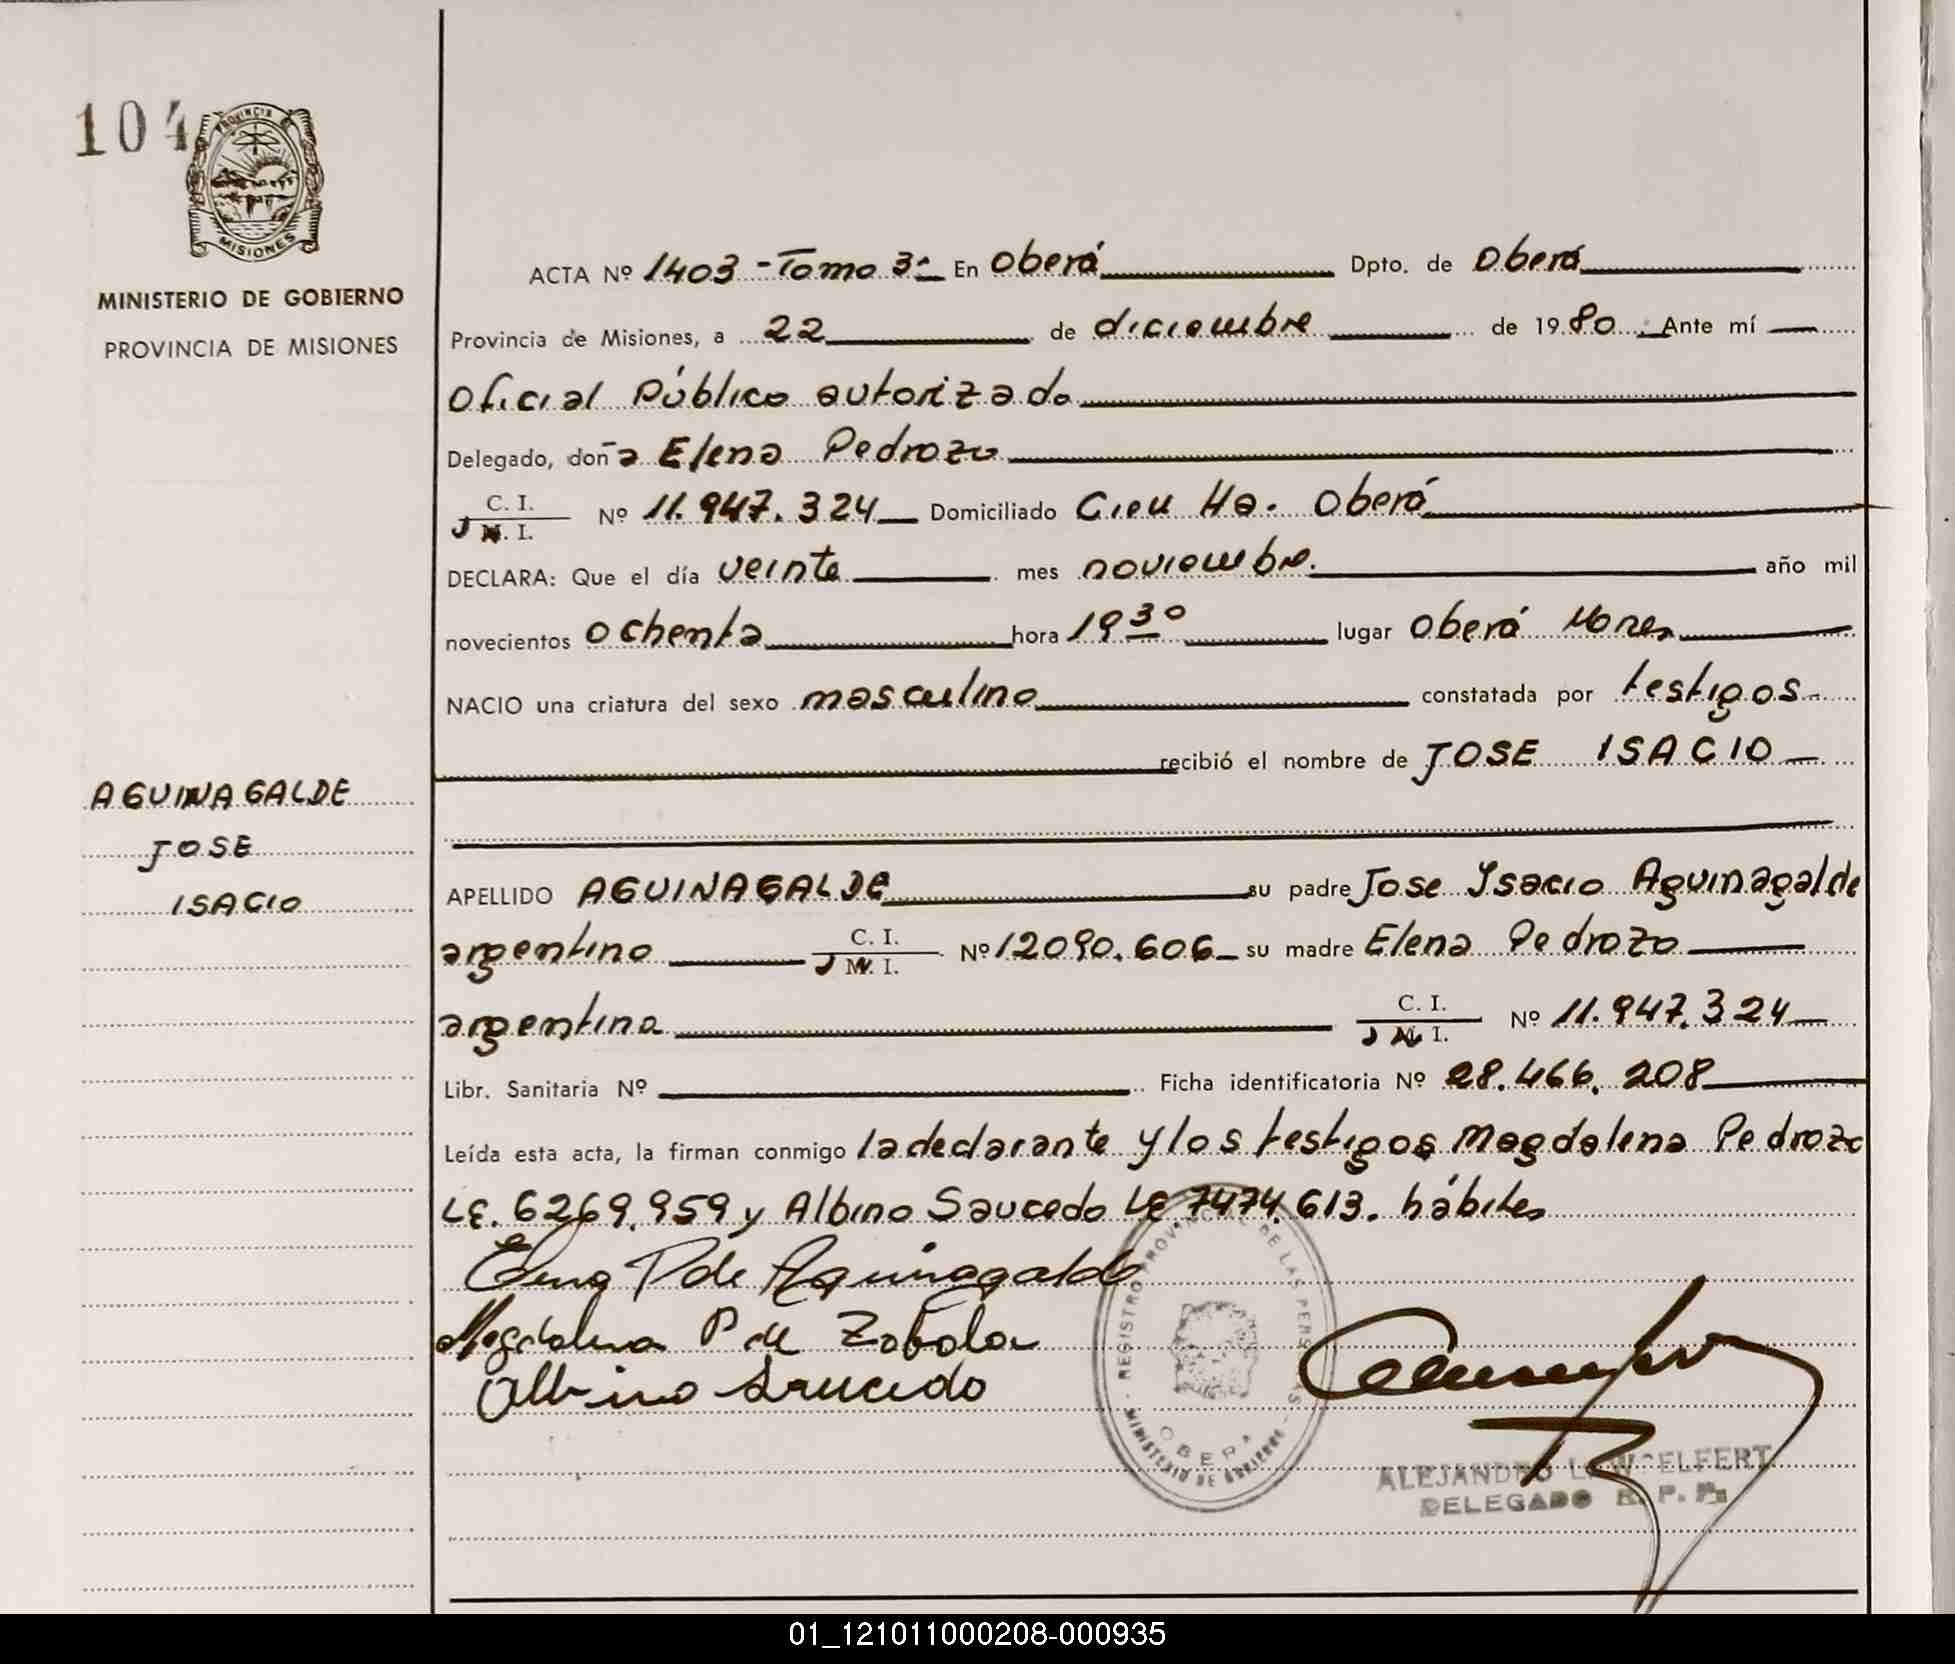 104
PROVINCIA DE
MISIONES
MINISTERIO DE GOBIERNO
PROVINCIA DE MISIONES
ACTA Nº 1403 - Tomo 3º En Oberá Dpto. de Oberá
Provincia de Misiones, a 22 de diciembre de 1980 Ante mí
Oficial Público autorizado
Delegado, doña Elena Pedrozo
C. I.
M. I. Nº 11.947.324 Domiciliado Cien Ha. Oberá
DECLARA: Que el día veinte mes noviembre. año mil
novecientos ochenta hora 19 30 lugar Oberá Mnes
NACIO una criatura del sexo masculino constatada por testigos
recibió el nombre de JOSE ISACIO
AGUINAGALDE
JOSE
ISACIO
APELLIDO AGUINAGALDE su padre Jose Ysacio Aguinagalde
argentino C. I. M. I. Nº 12090.606 su madre Elena Pedrozo
argentina C. I. M. I. Nº 11.947.324
Libr. Sanitaria Nº Ficha identificatoria Nº 28.466.208
Leída esta acta, la firman conmigo la declarante y los testigos Magdalena Pedrozo
LE. 6269.959 y Albino Saucedo LE. 7474.613. hábiles
Elena P de Aguinagalde
Magdalena P de Zabala
Albino Saucedo
REGISTRO PROVINCIAL DE LAS PERSONAS
OBERA
MINISTERIO DE GOBIERNO
ALEJANDRO
DELEGADO R. P. P.
01_121011000208-000935